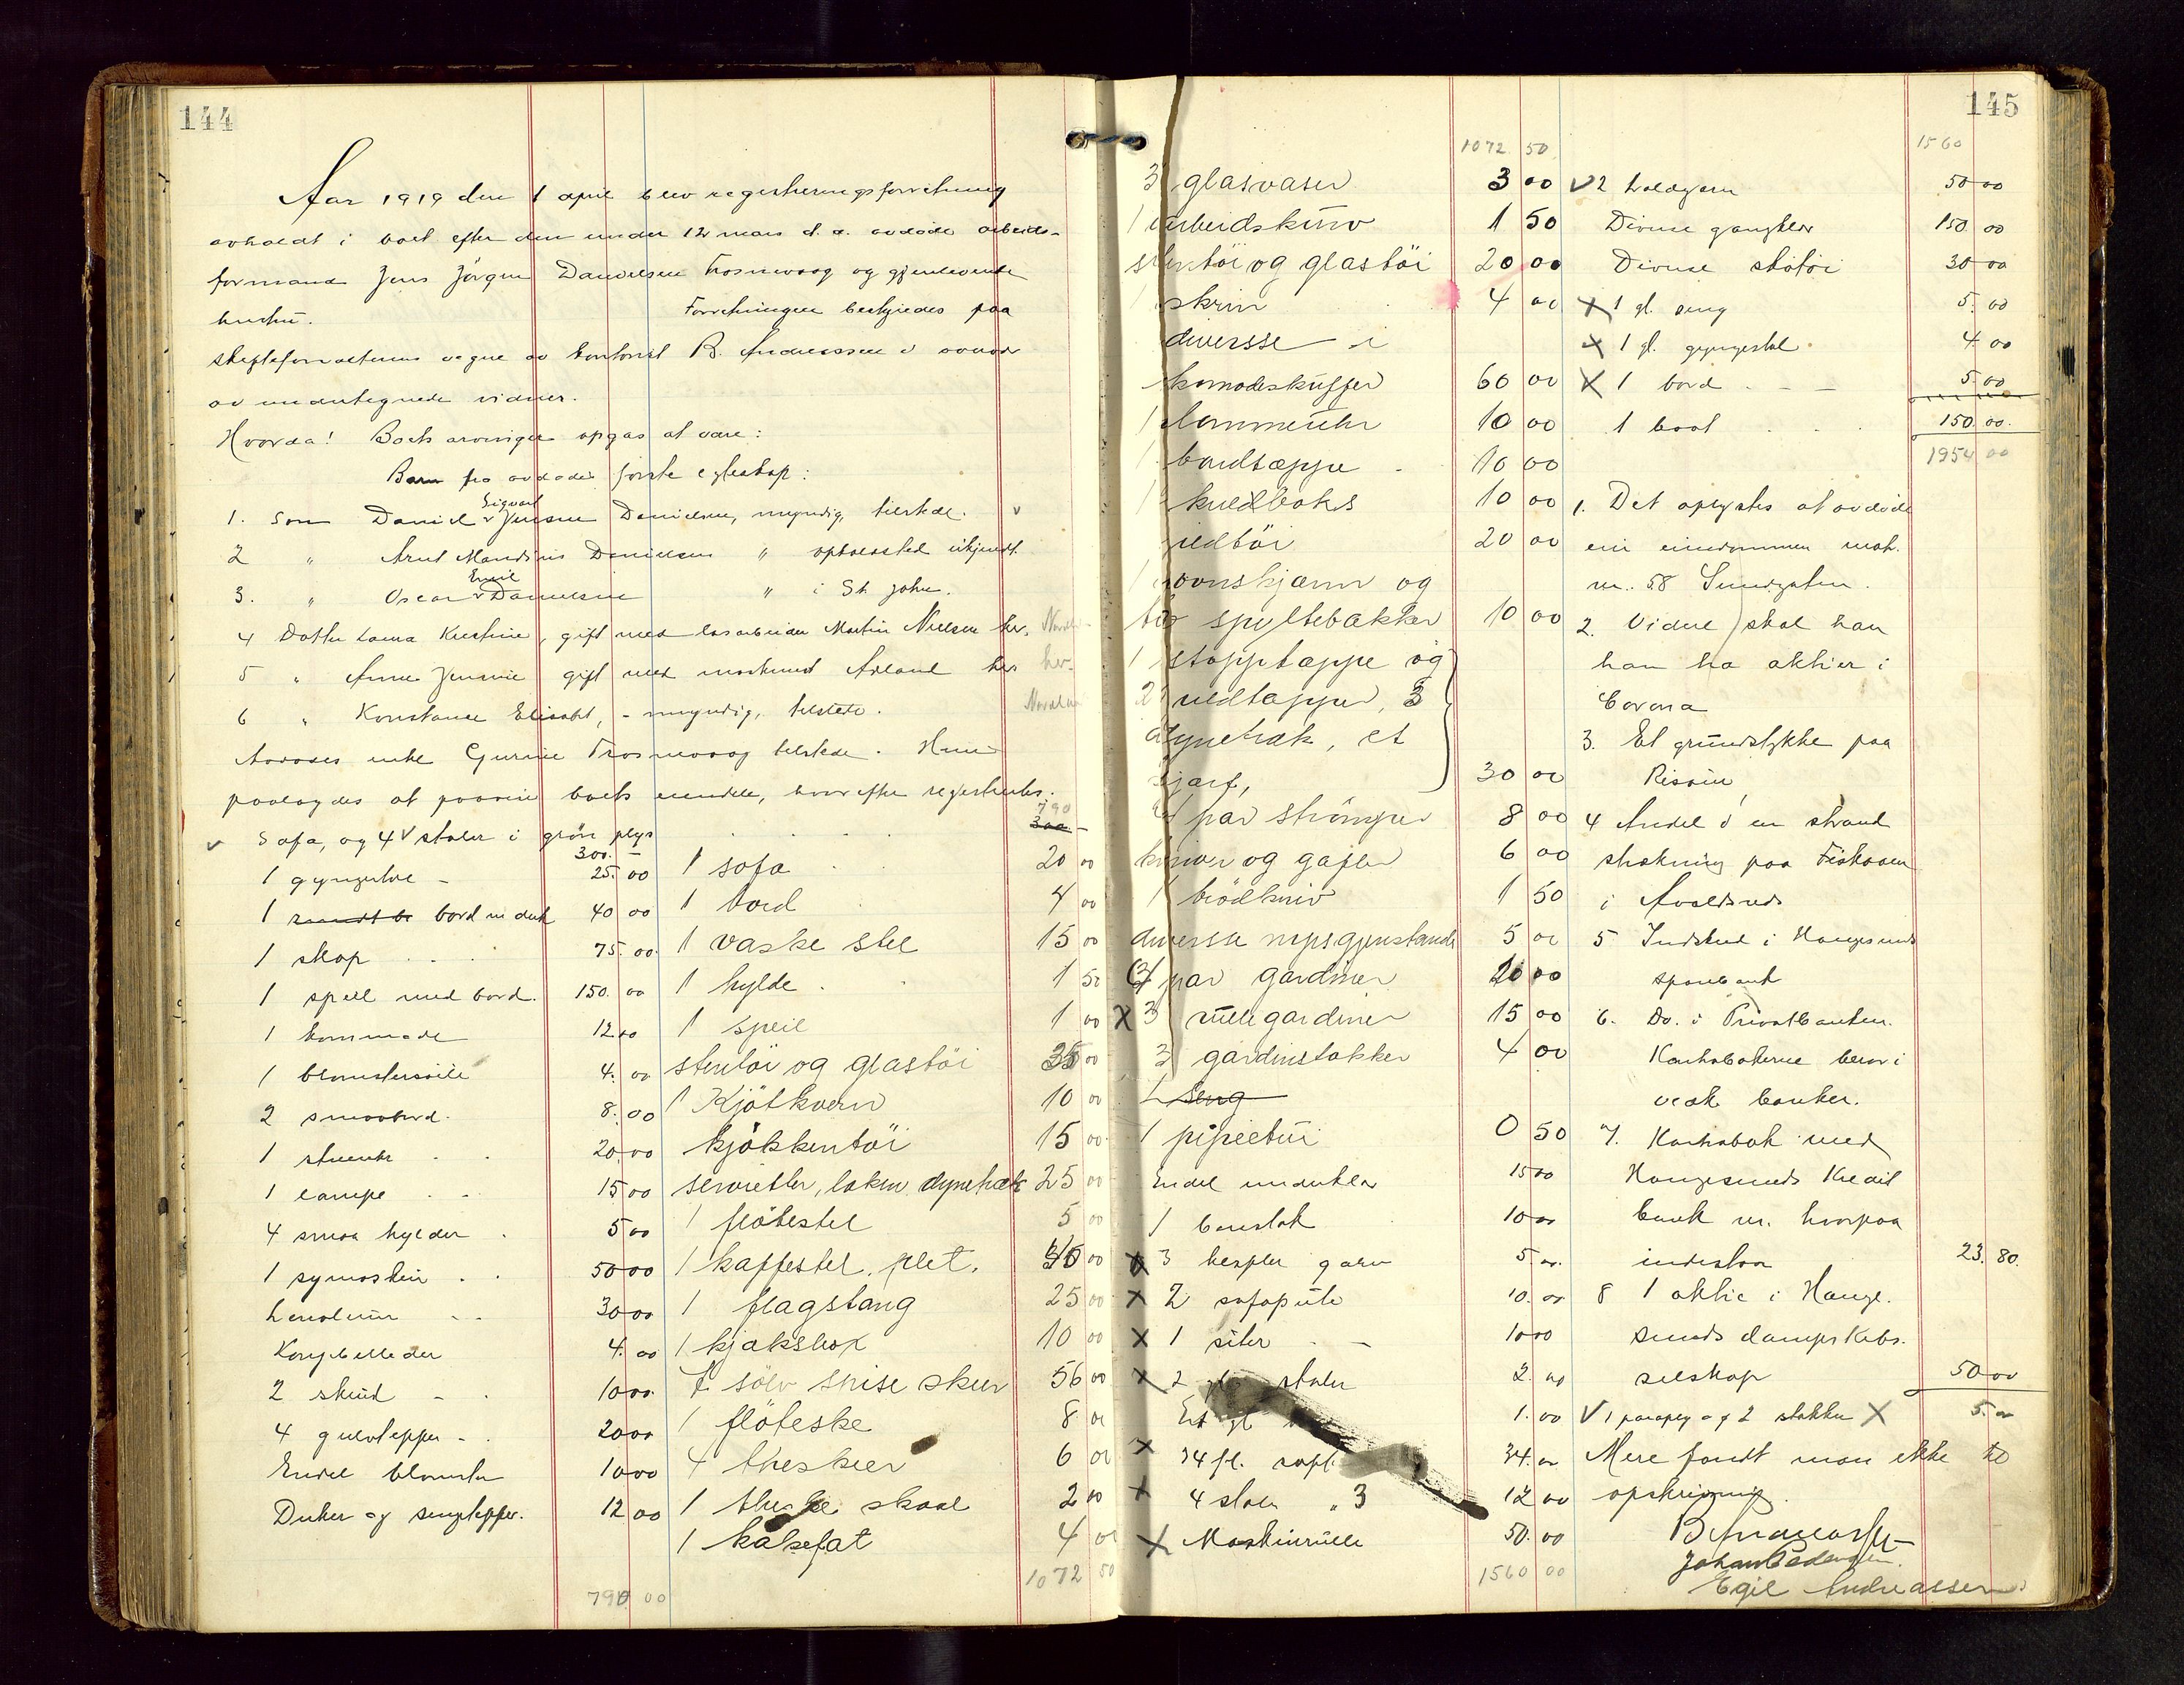 144
Aar 1919 den 1 april blev registreringsforretning
avholdt i boet efter den under 12 mars d. a. avdøde arbeids-
formand Jens Jörgen Danielsen Trosnavaag og gjenlevende
hustru. Forretningen bestyredes paa
skifteforvalterens vegne av kontorist B. Andreassen i overvær
av undertegnede vidner.
Hvorda! Boets arvinger opgas at være:
Barn fra avdødes første egteskap:
1. Søn Daniel Sigvart Jensen Danielsen, myndig, tilstede. v
2 " Arnt Danielsen " opholdssted ukjendt
3. " Oscar Emil Danielsen " i St. John.
4 Datter Laura Kristine, gift med losarbeider Martin Nielsen her.
5 " Anne Jensine gift med Adland her
6 " Konstanse Elisabet, - myndig, tilstede.
Avdødes enke Gurine Trosnavaag tilstede. Hun
paalagdes at paavise boets eiendele, hvorefter registrertes:
790
v Sofa, og 4 v stoler i grøn plys 300.-
300.-
1 gyngestol - 25.00
1 bord m duk 40 00
1 skap 75.00
1 speil med bord. 150.00
1 kommode 12 00
1 blomstersöile 4.00
2 smaabord. 8.00
1 stueuhr 20.00
1 lampe 15 00
4 smaa hylder 5 00
1 symaskin 50 00
Linoleum 30 00
Kongebilleder 4.00
2 skind - 10 00
4 gulvtepper - 20 00
Endel blomster 10 00
Duker og sengtepper. 12 00
790 00
1 sofa 20 00
1 bord 4 00
1 vaske stel 15 00
1 hylde 1 50
1 speil 1 00
stentöi og glastöi 35 00
1 Kjötkvern 10 00
kjökkentöi 15 00
servietter, laken dynetræk 25 00
1 flötestel 5 00
1 kaffestel. plet. 00
1 flagstang 25 00
1 kjökskap 10 00
7 sölv spise skeer 56 00
1 flöteske 8 00
4 theskeer 6 00
1 skaal 2 00
1 kakefat 4 00
1072 50
145
1072 50
3 glasvaser 3 00
1 arbeidskurv 1 50
stentöi og glastöi 20 00
1 skrin 4 00
diversse i
komodeskuffer 60 00
1 lommeuhr 10 00
1 bordtæppe 10 00
1 kuldboks 10 00
uldtöi 20 00
1 ovnskjærm og
to spyttebakker 10 00
1 stopptæppe og
2 uldtæpper, 3
dynetræk, et
skjærf, 30 00
4 par strömper 8 00
kniver og gafler 6 00
1 brödkniv 1 50
diverse nipsgjenstande 5 00
par gardiner 20 00
X 3 rullegardiner 15 00
3 gardinstokker 4 00
1 seng
1 pipeetui 0 50
Endel underklær 15 00
1 10 00
X 3 hespler garn 5 00
X 2 sofapute 10.00
X 1 siter 10 00
X 2 stoler 2.00
Et gl. 1.00
X 34 fl. saft 34.00
X 4 stoler " 3 12 00
X Maskinrulle 50.00
1560 00
1560
V 2 50 00
Diverse gangklær 150 00
Diverse skotöi 30 00
X 1 gl. seng 5.00
X 1 gl. gyngestol 4 00
X 1 bord - - 5.00
1 baat 150.00.
1954 00
1. Det oplystes at avdøde
eier eiendommen matr.
nr. 58 Sundgaten.
2. Videre skal han
han ha aktier i
Corona
3. Et grundstykke paa
Risöin
4 Andel i en strand
strækning paa Fiskaaen
i Avaldsnes
5 Indskud i Haugesunds
sparebank
6. Do. i Privatbanken.
Kontrabökerne beror i
banker.
7. Kontrabok med
Haugesunds Kredit
bank nr. hvorpaa
indestaar 23.80.
8 1 aktie i Hauge-
sunds dampskibs-
selskap 50 00
V 1 paraply og 2 stokker X 5.00
Mere fandt man ikke til
opskrivning.
B Andreassen
Johan Pedersen.
Egil Andreassen